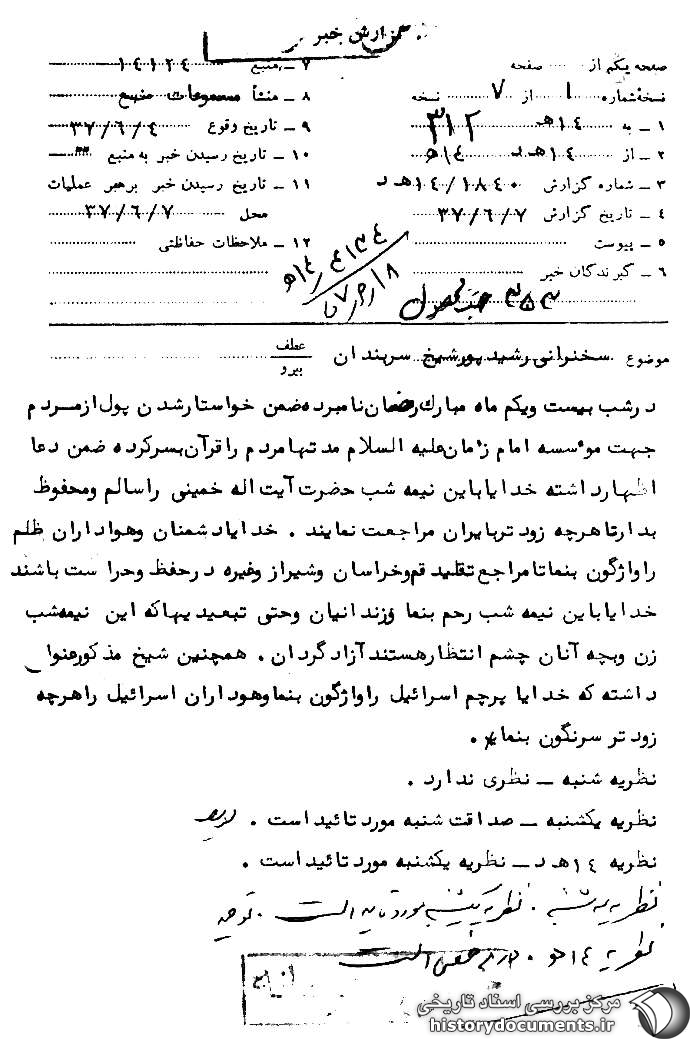 گزارش خبر
صفحه یکم از ........ صفحه
نسخهٔ شماره ۱ از ۷ نسخه
۱ ـ به ۱۴ هـ ۳۱۲
۲ ـ از ۱۴ هـ د
۳ ـ شماره گزارش ۱۴/۱۸۴۰ هـ د
۴ ـ تاریخ گزارش ۳۷/۶/۷
۵ ـ پیوست
۶ ـ گیرندگان خبر
۷ ـ منبع ۱۴۱۲۴
۸ ـ منشأ مسموعات منبع
۹ ـ تاریخ وقوع ۳۷/۶/۴
۱۰ ـ تاریخ رسیدن خبر به منبع
۱۱ ـ تاریخ رسیدن خبر برهبر عملیات
محل ۳۷/۶/۷
۱۲ ـ ملاحظات حفاظتی
موضوع سخنرانی رشید پور شیخ سربندان
عطف
پیرو
در شب بیست ویکم ماه مبارك رمضان نامبرده ضمن خواستار شدن پول از مردم
جهت موسسه امام زمان علیه السلام مدتها مردم را قرآن بسر کرده ضمن دعا
اظهار داشته خدایا باین نیمه شب حضرت آیت اله خمینی را سالم ومحفوظ
بدار تا هرچه زود تر بایران مراجعت نمایند . خدایا دشمنان وهواداران ظلم
را واژگون بنما تا مراجع تقلید قم وخراسان وشیراز وغیره در حفظ وحراست باشند
خدایا باین نیمه شب رحم بنما وزندانیان وحتی تبعیدیها که این نیمه شب
زن وبچه آنان چشم انتظار هستند آزاد گردان . همچنین شیخ مذکور عنوان
داشته که خدایا پرچم اسرائیل را واژگون بنما وهوداران اسرائیل را هرچه
زود تر سرنگون بنما .
نظریه شنبه ـ نظری ندارد .
نظریه یکشنبه ـ صداقت شنبه مورد تائید است .
نظریه ۱۴ هـ د ـ نظریه یکشنبه مورد تائید است .
نظریه سه شنبه . نظریه یکشنبه مورد تایید است .
نظریه ۱۴ هـ
مرکز بررسی اسناد تاریخی
historydocuments.ir